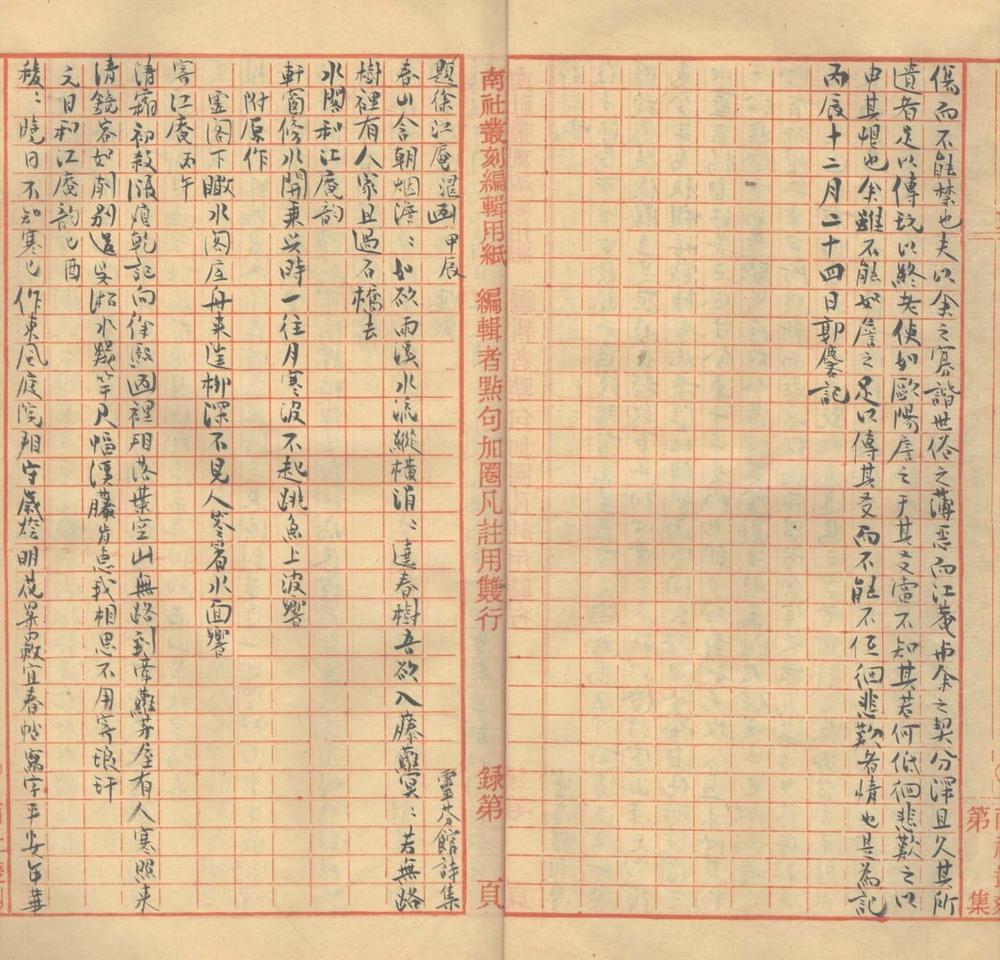 傷而不能禁也夫以余之寡諧世俗之薄惡而江菴与余之契分深且久其所
遺者足以傳玩以終老使如歐陽詹之于其文當不知其若何低徊悲歎之以
申其恨也余雖不能如詹之足以傳其友而不能不低徊悲歎者情也是為記
丙辰十二月二十四日郭麐記
第 集
南社叢刻編輯用紙 編輯者點句加圈凡註用雙行 録第 頁
題徐江庵遺画甲辰 靈芬館詩集
春山含朝烟澹〻如欲雨溪水流縱橫涓〻遶春樹吾欲入藤蘿冥〻若無路
樹裡有人家且過石橋去
水閣和江庵韵
軒窗修水開乘興時一往月寒波不起跳魚上波響
附原作
虛閣下瞰水閣底舟来往柳深不見人答箸水面響
寄江庵丙午
清霜初殺漲痕乾記向徐熙画裡看落葉空山無路到帝蘿茅屋有人寒照来
清鏡容如削別過吴淞水幾竿尺幅溪藤肯惠我相思不用寄琅玕
元日和江庵韵己酉
稜〻曉日不知寒已作東風庭院看守歲燈明花𦊅罳宜春帖寫字平安年華